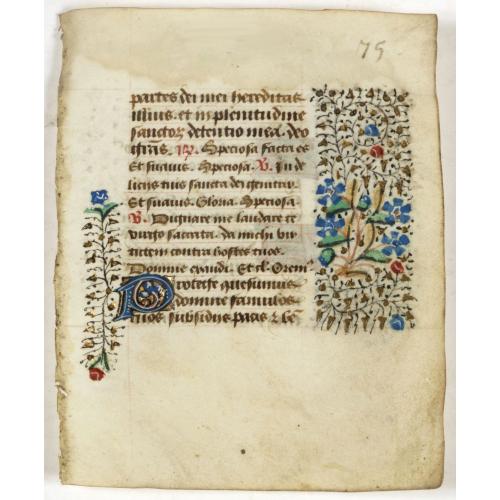 75
partes dei mei hereditas
illius. et in plenitudine
sanctoꝝ detentio mea. deo
gr̃as. ℟. Speciosa facta es
Et suauis. Speciosa. ℣. In de
liciis tuis sancta dei genitrix
Et suauis. Gloria. Speciosa.
℣. Dignare me laudare te
virgo sacrata. da michi vir
tutem contra hostes tuos.
Domine exaudi. Et cl. Orem
Protege quesumus
domine famulos
tuos subsidiis pacis &